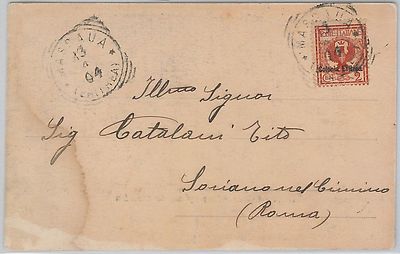 MASSAUA
13
04
(ERITREA)
MASSAUA
Colonia Eritrea
2
Illmo Signor
Sig Catalani Tito
Soriano nel Cimino
(Roma)